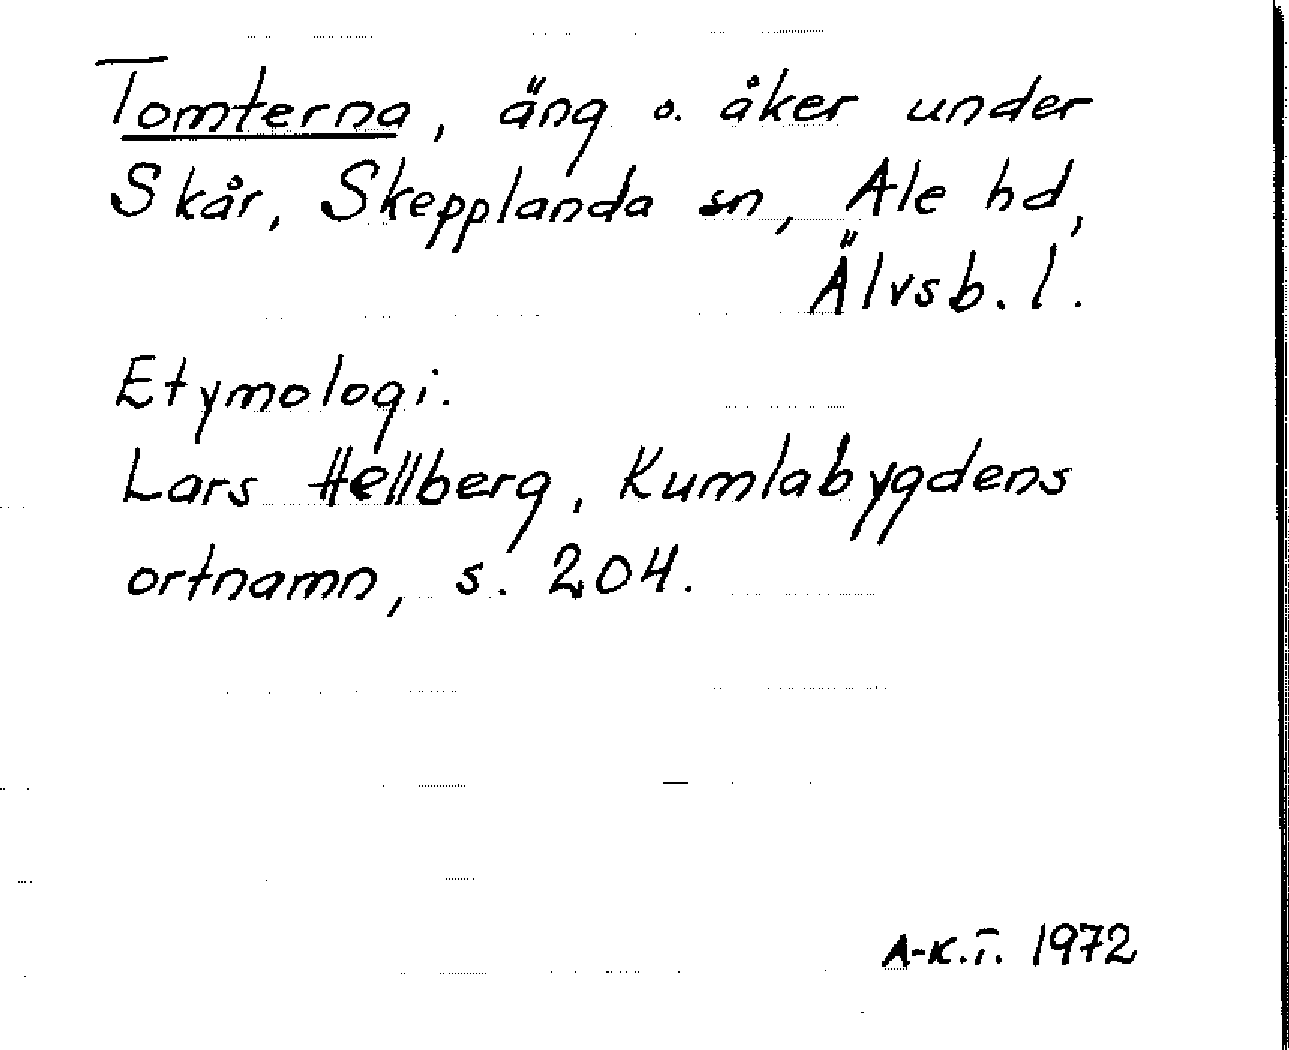 Tomterna, äng o. åker under
Skår, Skepplanda sn, Ale hd,
Älvsb. l.
Etymologi.
Lars Hellberg, Kumlabygdens
ortnamn, s. 204.
A-K.T. 1972